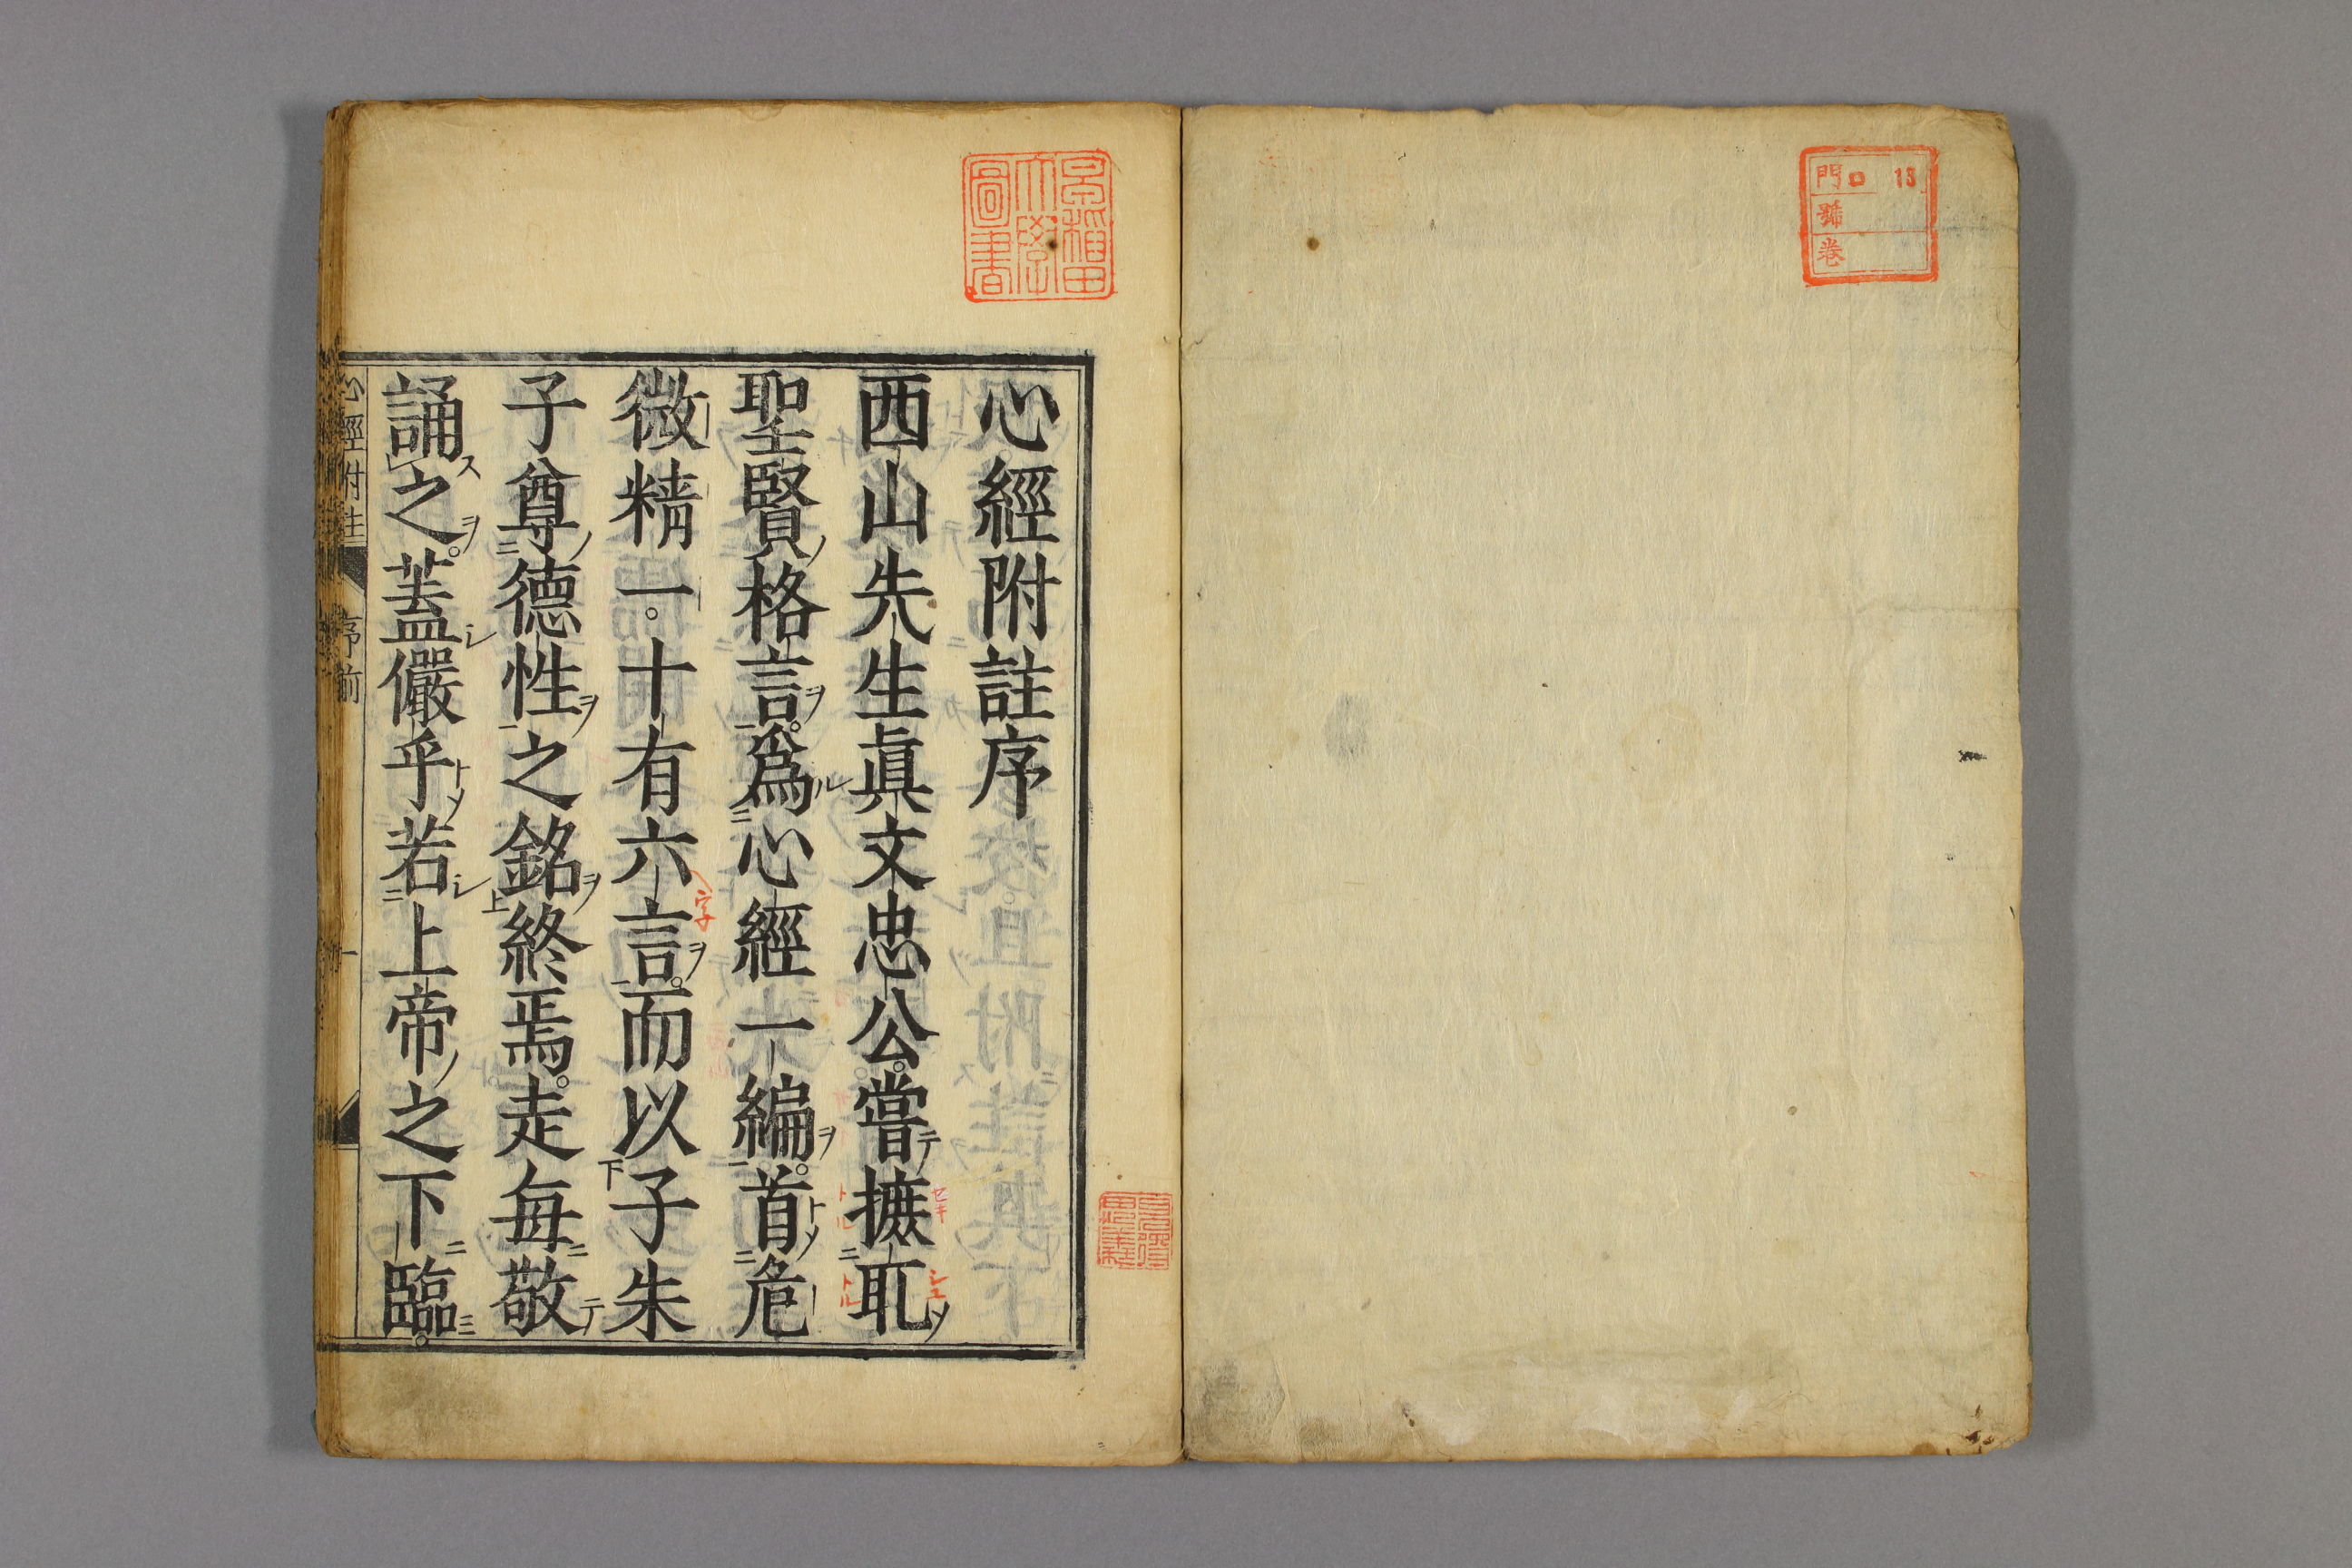 門 ロ 13
號
卷
早稲田
大學
圖書
心經附註序
西山先生眞文忠公。嘗摭取
聖賢格言。爲心經一編。首危
微精一。十有六言。而以子朱
子尊德性之銘終焉。走每敬
誦之。蓋儼乎若上帝之下臨。
心經附註 序前 一